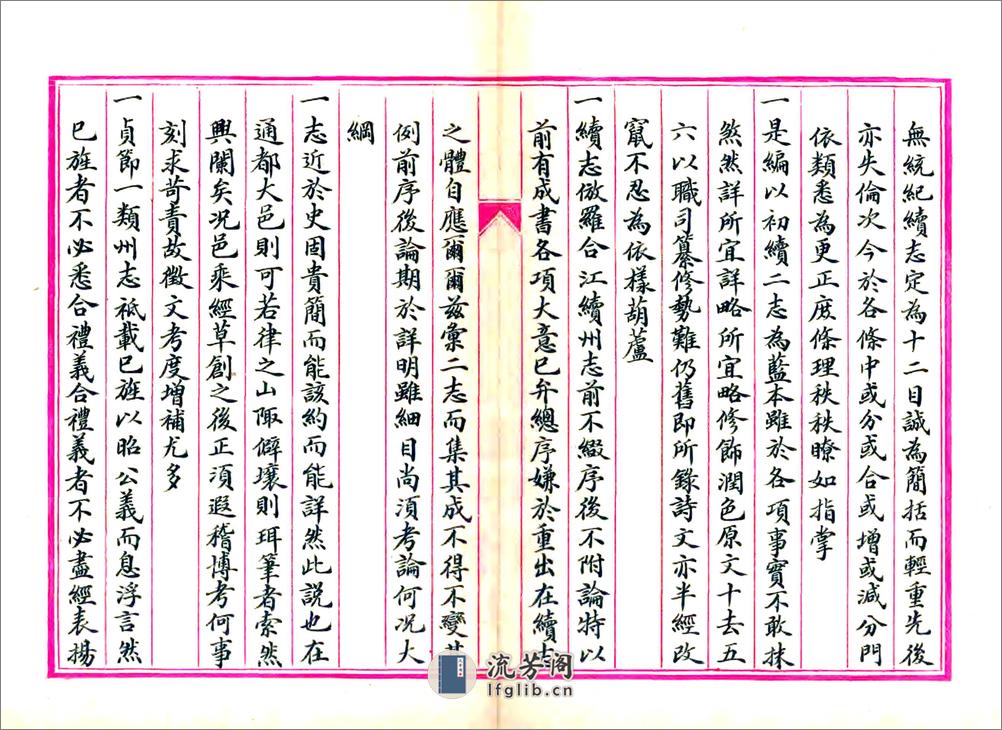 無統紀續志定為十二目誠為簡括而輕重先後
亦失倫次今於各條中或分或合或增或減分門
依類悉為更正庶條理秩秩瞭如指掌
一是編以初續二志為藍本雖於各項事實不敢抹
煞然詳所宜詳略所宜略修飾潤色原文十去五
六以職司纂修勢難仍舊即所錄詩文亦半經改
竄不忍為依樣葫蘆
一續志倣羅合江續州志前不綴序後不附論特以
前有成書各項大意已弁總序嫌於重出在續志
之體自應爾爾茲彙二志而集其成不得不變其
例前序後論期於詳明雖細目尚須考論何況大
綱
一志近於史固貴簡而能該約而能詳然此説也在
通都大邑則可若律之山陬僻壤則珥筆者索然
興闌矣況邑乘經草創之後正須遐稽博考何事
刻求苛責故徵文考度增補尤多
一貞節一類州志祗載已旌以昭公義而息浮言然
已旌者不必悉合禮義合禮義者不必盡經表揚
流芳閣
lfglib.cn